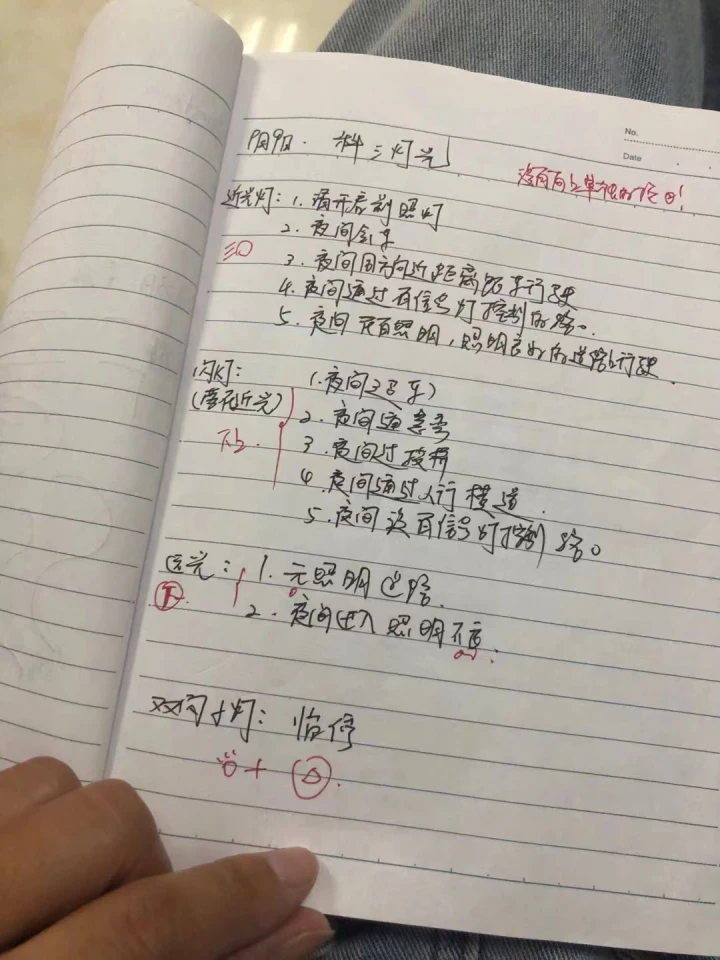 No.
Date
阴阳. 科三灯光
没有向上单独的说法!
近光灯: 1. 请开启前照灯
2. 夜间会车
3. 夜间同方向近距离跟车行驶
4. 夜间通过有信号灯控制的路口.
5. 夜间在有照明, 照明良好的道路上行驶.
闪灯: 1. 夜间超车
(远近光) 2. 夜间通急弯
下上. 3. 夜间过拱桥
4. 夜间通过人行横道.
5. 夜间没有信号灯控制路口
远光: 1. 无照明道路.
下 2. 夜间进入照明不良.
双闪+灯: 临停
+